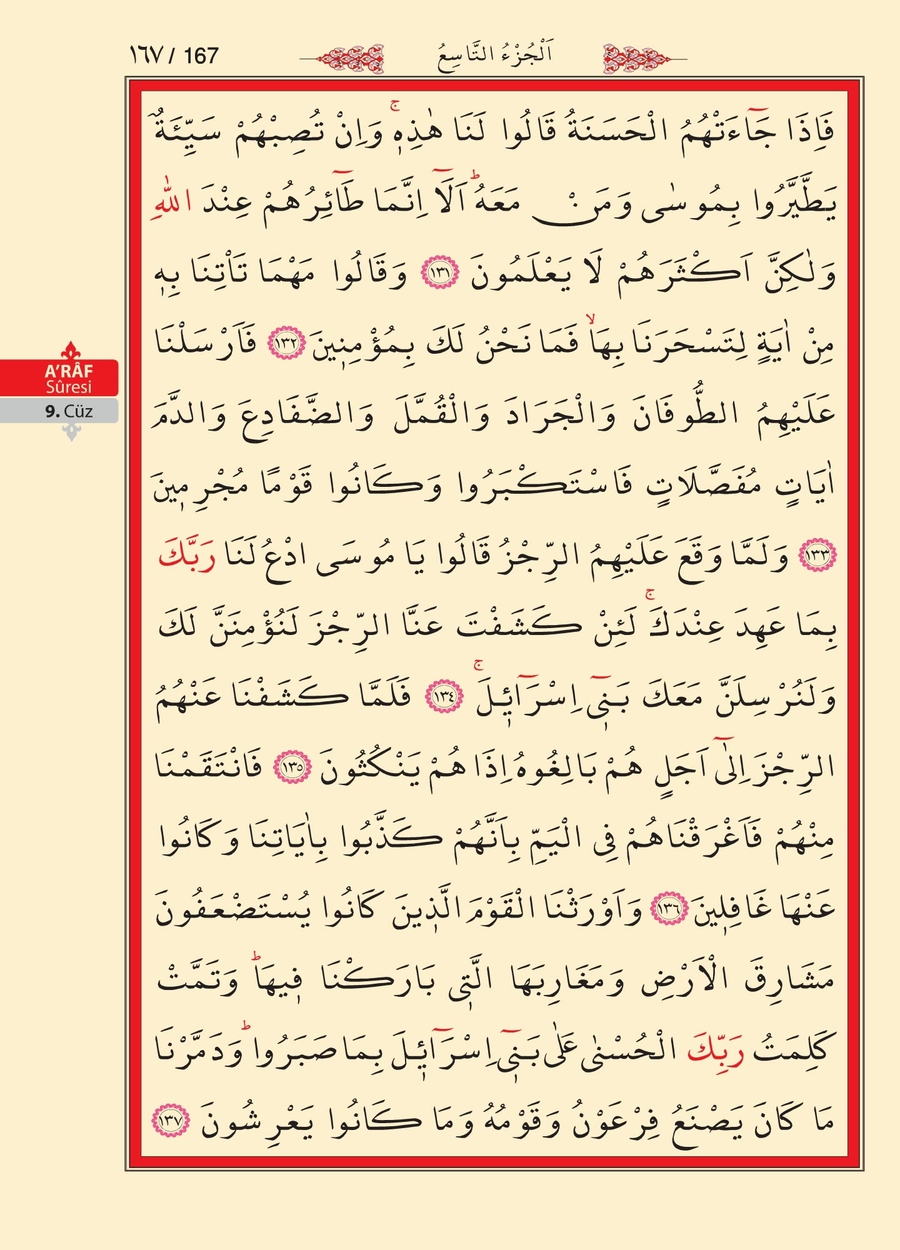 ١٦٧ / 167
اَلْجُزْءُ التَّاسِعُ
فَاِذَا جَٓاءَتْهُمُ الْحَسَنَةُ قَالُوا لَنَا هٰذِه۪ۚ وَاِنْ تُصِبْهُمْ سَيِّئَةٌ
يَطَّيَّرُوا بِمُوسٰى وَمَنْ مَعَهُۜ اَلَٓا اِنَّمَا طَٓائِرُهُمْ عِنْدَ اللّٰهِ
وَلٰكِنَّ اَكْثَرَهُمْ لَا يَعْلَمُونَ ﴿١٣١﴾ وَقَالُوا مَهْمَا تَأْتِنَا بِه۪
مِنْ اٰيَةٍ لِتَسْحَرَنَا بِهَاۙ فَمَا نَحْنُ لَكَ بِمُؤْمِن۪ينَ ﴿١٣٢﴾ فَاَرْسَلْنَا
عَلَيْهِمُ الطُّوفَانَ وَالْجَرَادَ وَالْقُمَّلَ وَالضَّفَادِعَ وَالدَّمَ
اٰيَاتٍ مُفَصَّلَاتٍ فَاسْتَكْبَرُوا وَكَانُوا قَوْمًا مُجْرِم۪ينَ
﴿١٣٣﴾ وَلَمَّا وَقَعَ عَلَيْهِمُ الرِّجْزُ قَالُوا يَا مُوسَى ادْعُ لَنَا رَبَّكَ
بِمَا عَهِدَ عِنْدَكَۚ لَئِنْ كَشَفْتَ عَنَّا الرِّجْزَ لَنُؤْمِنَنَّ لَكَ
وَلَنُرْسِلَنَّ مَعَكَ بَن۪ٓي اِسْرَٓائ۪لَۚ ﴿١٣٤﴾ فَلَمَّا كَشَفْنَا عَنْهُمُ
الرِّجْزَ اِلٰٓى اَجَلٍ هُمْ بَالِغُوهُ اِذَا هُمْ يَنْكُثُونَ ﴿١٣٥﴾ فَانْتَقَمْنَا
مِنْهُمْ فَاَغْرَقْنَاهُمْ فِي الْيَمِّ بِاَنَّهُمْ كَذَّبُوا بِاٰيَاتِنَا وَكَانُوا
عَنْهَا غَافِل۪ينَ ﴿١٣٦﴾ وَاَوْرَثْنَا الْقَوْمَ الَّذ۪ينَ كَانُوا يُسْتَضْعَفُونَ
مَشَارِقَ الْاَرْضِ وَمَغَارِبَهَا الَّت۪ي بَارَكْنَا ف۪يهَاۜ وَتَمَّتْ
كَلِمَتُ رَبِّكَ الْحُسْنٰى عَلٰى بَن۪ٓي اِسْرَٓائ۪لَ بِمَا صَبَرُواۜ وَدَمَّرْنَا
مَا كَانَ يَصْنَعُ فِرْعَوْنُ وَقَوْمُهُ وَمَا كَانُوا يَعْرِشُونَ ﴿١٣٧﴾
A'RÂF
Sûresi
9. Cüz